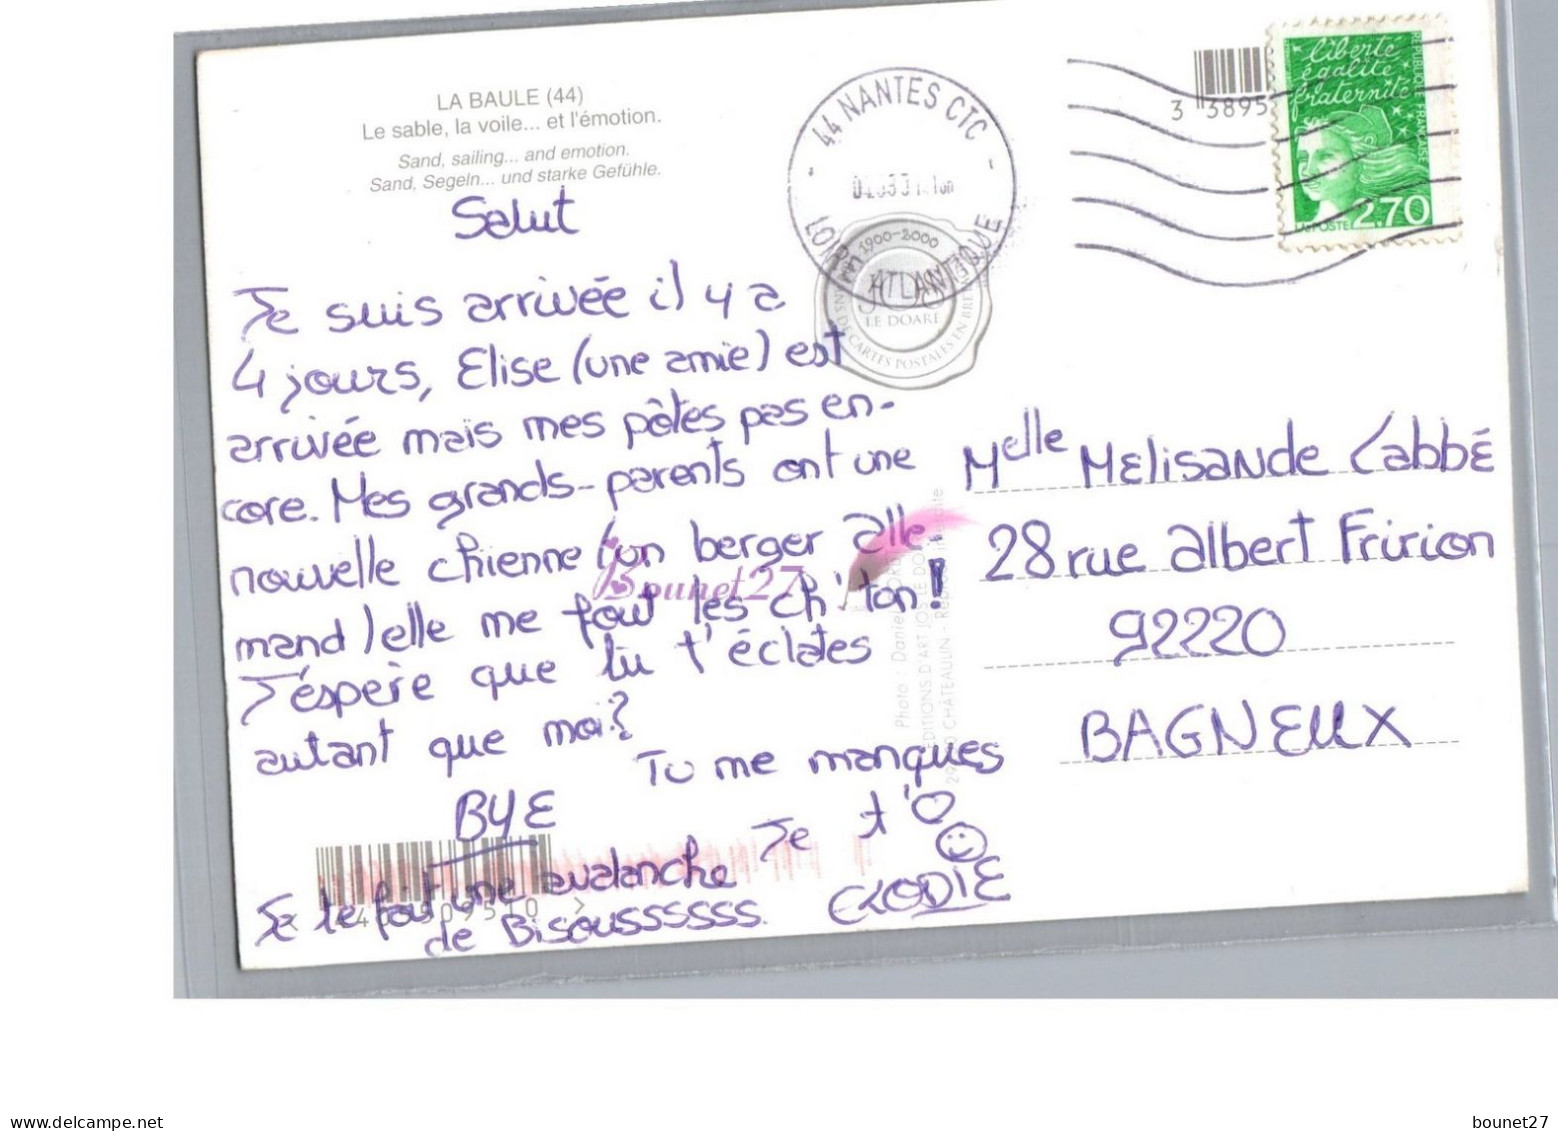 LA BAULE (44)
Le sable, la voile... et l'émotion.
Sand, sailing... and emotion.
Sand, Segeln... und starke Gefühle.
44 NANTES CTC
LOIRE ATLANTIQUE
1900-2000
LE DOARÉ
DE CARTES POSTALES EN
3 3895
liberté
égalité
fraternité
REPUBLIQUE FRANÇAISE
LA POSTE 2,70
Salut
Je suis arrivée il y a
4 jours, Elise (une amie) est
arrivée mais mes pôtes pas en-
core. Mes grands-parents ont une
nouvelle chienne (un berger alle-
mand) elle me fout les ch'ton!
J'éspère que tu t'éclates
autant que moi?
Tu me manques
BYE
Je t'♡
Je te fait une avalanche
de Bisoussssss.
ELODIE
Melle MELisANde Labbé
28 rue Albert Fririon
92220
BAGNEUX
Photo : Daniel
EDITIONS D'ART JOS LE DOARÉ
CHÂTEAULIN
Bounet27
www.delcampe.net
bounet27